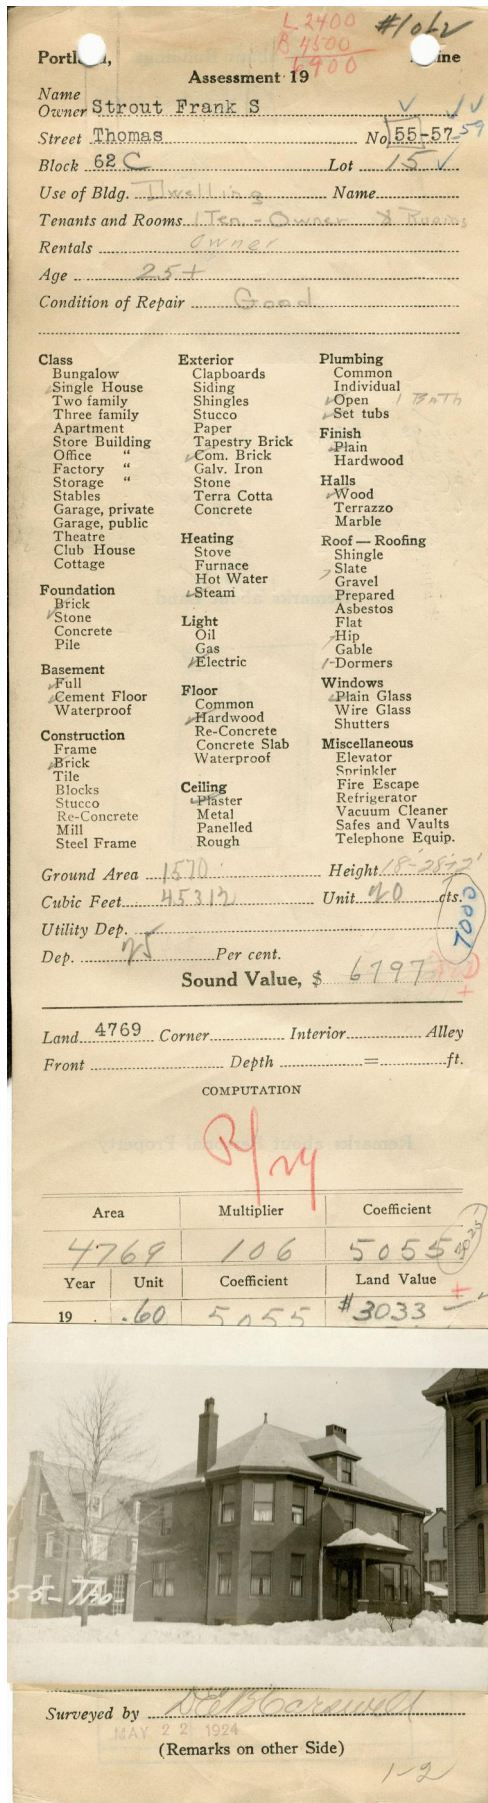 L 2400 #1 of 2
B 4500
6900
Portland, Maine
Assessment 19
Name
Owner Strout Frank S
Street Thomas No. 55-57-59
Block 62 C Lot 15
Use of Bldg. Dwelling Name
Tenants and Rooms 1 Ten - Owner 8 Rooms
Rentals Owner
Age 25+
Condition of Repair Good
Class
Bungalow
Single House
Two family
Three family
Apartment
Store Building
Office "
Factory "
Storage "
Stables
Garage, private
Garage, public
Theatre
Club House
Cottage
Foundation
Brick
Stone
Concrete
Pile
Basement
Full
Cement Floor
Waterproof
Construction
Frame
Brick
Tile
Blocks
Stucco
Re-Concrete
Mill
Steel Frame
Exterior
Clapboards
Siding
Shingles
Stucco
Paper
Tapestry Brick
Com. Brick
Galv. Iron
Stone
Terra Cotta
Concrete
Heating
Stove
Furnace
Hot Water
Steam
Light
Oil
Gas
Electric
Floor
Common
Hardwood
Re-Concrete
Concrete Slab
Waterproof
Ceiling
Plaster
Metal
Panelled
Rough
Plumbing
Common
Individual
Open 1 Bath
Set tubs
Finish
Plain
Hardwood
Halls
Wood
Terrazzo
Marble
Roof — Roofing
Shingle
Slate
Gravel
Prepared
Asbestos
Flat
Hip
Gable
1-Dormers
Windows
Plain Glass
Wire Glass
Shutters
Miscellaneous
Elevator
Sprinkler
Fire Escape
Refrigerator
Vacuum Cleaner
Safes and Vaults
Telephone Equip.
Ground Area 1570 Height 18'-28-12'
Cubic Feet 45312 Unit 20 cts.
7000
Utility Dep.
Dep. 25 Per cent.
Sound Value, $ 6797
Land 4769 Corner Interior Alley
Front Depth = ft.
COMPUTATION
R/24
Area Multiplier Coefficient
4769 106 5055
Year Unit Coefficient Land Value
19 .60 5055 #3033
55-Tho-
Surveyed by D E B Carswell
MAY 22 1924
(Remarks on other Side)
1-2